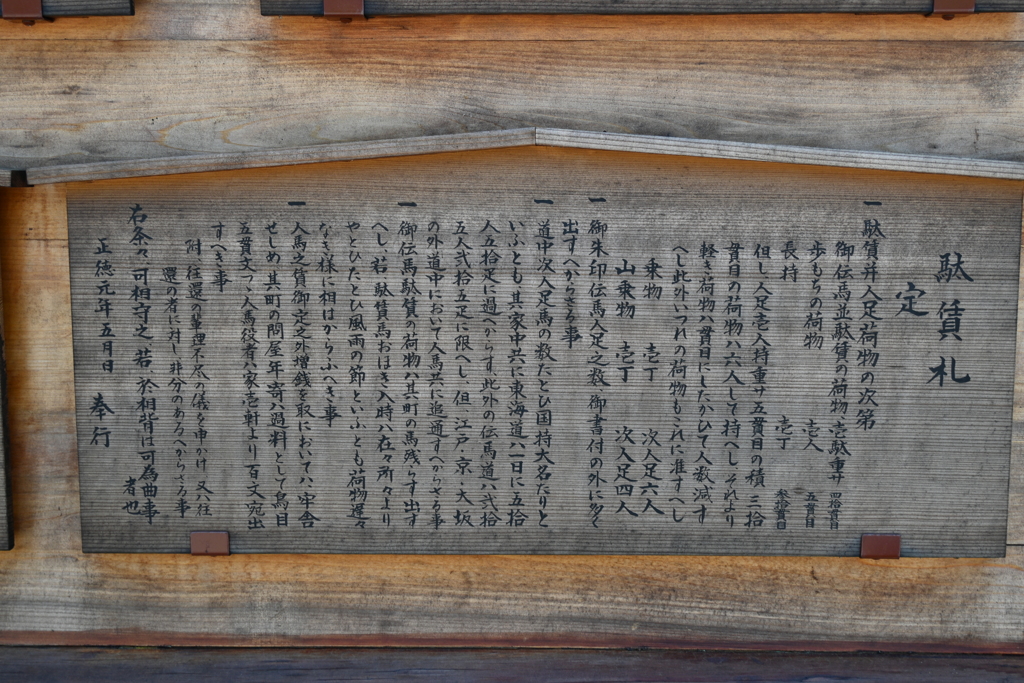 駄賃札
定
一 駄賃并人足荷物の次第
御伝馬並駄賃の荷物ハ壱駄重サ 四拾貫目
歩もちの荷物 壱人 五貫目
長持 壱丁 参拾貫目
但し人足壱人持重サ五貫目の積 三拾
貫目の荷物ハ六人して持へし、それより
軽き荷物ハ貫目にしたかひて人数減す
へし此外いつれの荷物もこれに准すへし
乗物 壱丁 次人足六人
山乗物 壱丁 次人足四人
一 御朱印伝馬人足之数、御書付の外に多く
出すへからさる事
一 道中次人足馬の数たとひ国持大名たりと
いふとも、其家中共に東海道ハ一日に五拾
人五拾疋に過へからす、此外の伝馬道ハ弐拾
五人弐拾五疋に限へし、但、江戸・京・大坂
の外道中において人馬共に追通すへからさる事
一 御伝馬駄賃の荷物ハ其町の馬残らす出す
へし、若、駄賃馬おほき入時ハ在々所々より
やとひたとひ風雨の節といふとも荷物遅々
なき様に相はからふへき事
一 人馬之賃御定之外増銭を取においてハ、牢舎
せしめ其町の問屋年寄ハ過料として鳥目
五貫文つゝ人馬役者ハ家壱軒より百文宛出
すへき事
附 往還の輩理不尽の儀を申かけ 又ハ往
還の者に対し非分のあるへからさる事
右条々可相守之若於相背は可為曲事
者也
正徳元年五月日 奉行